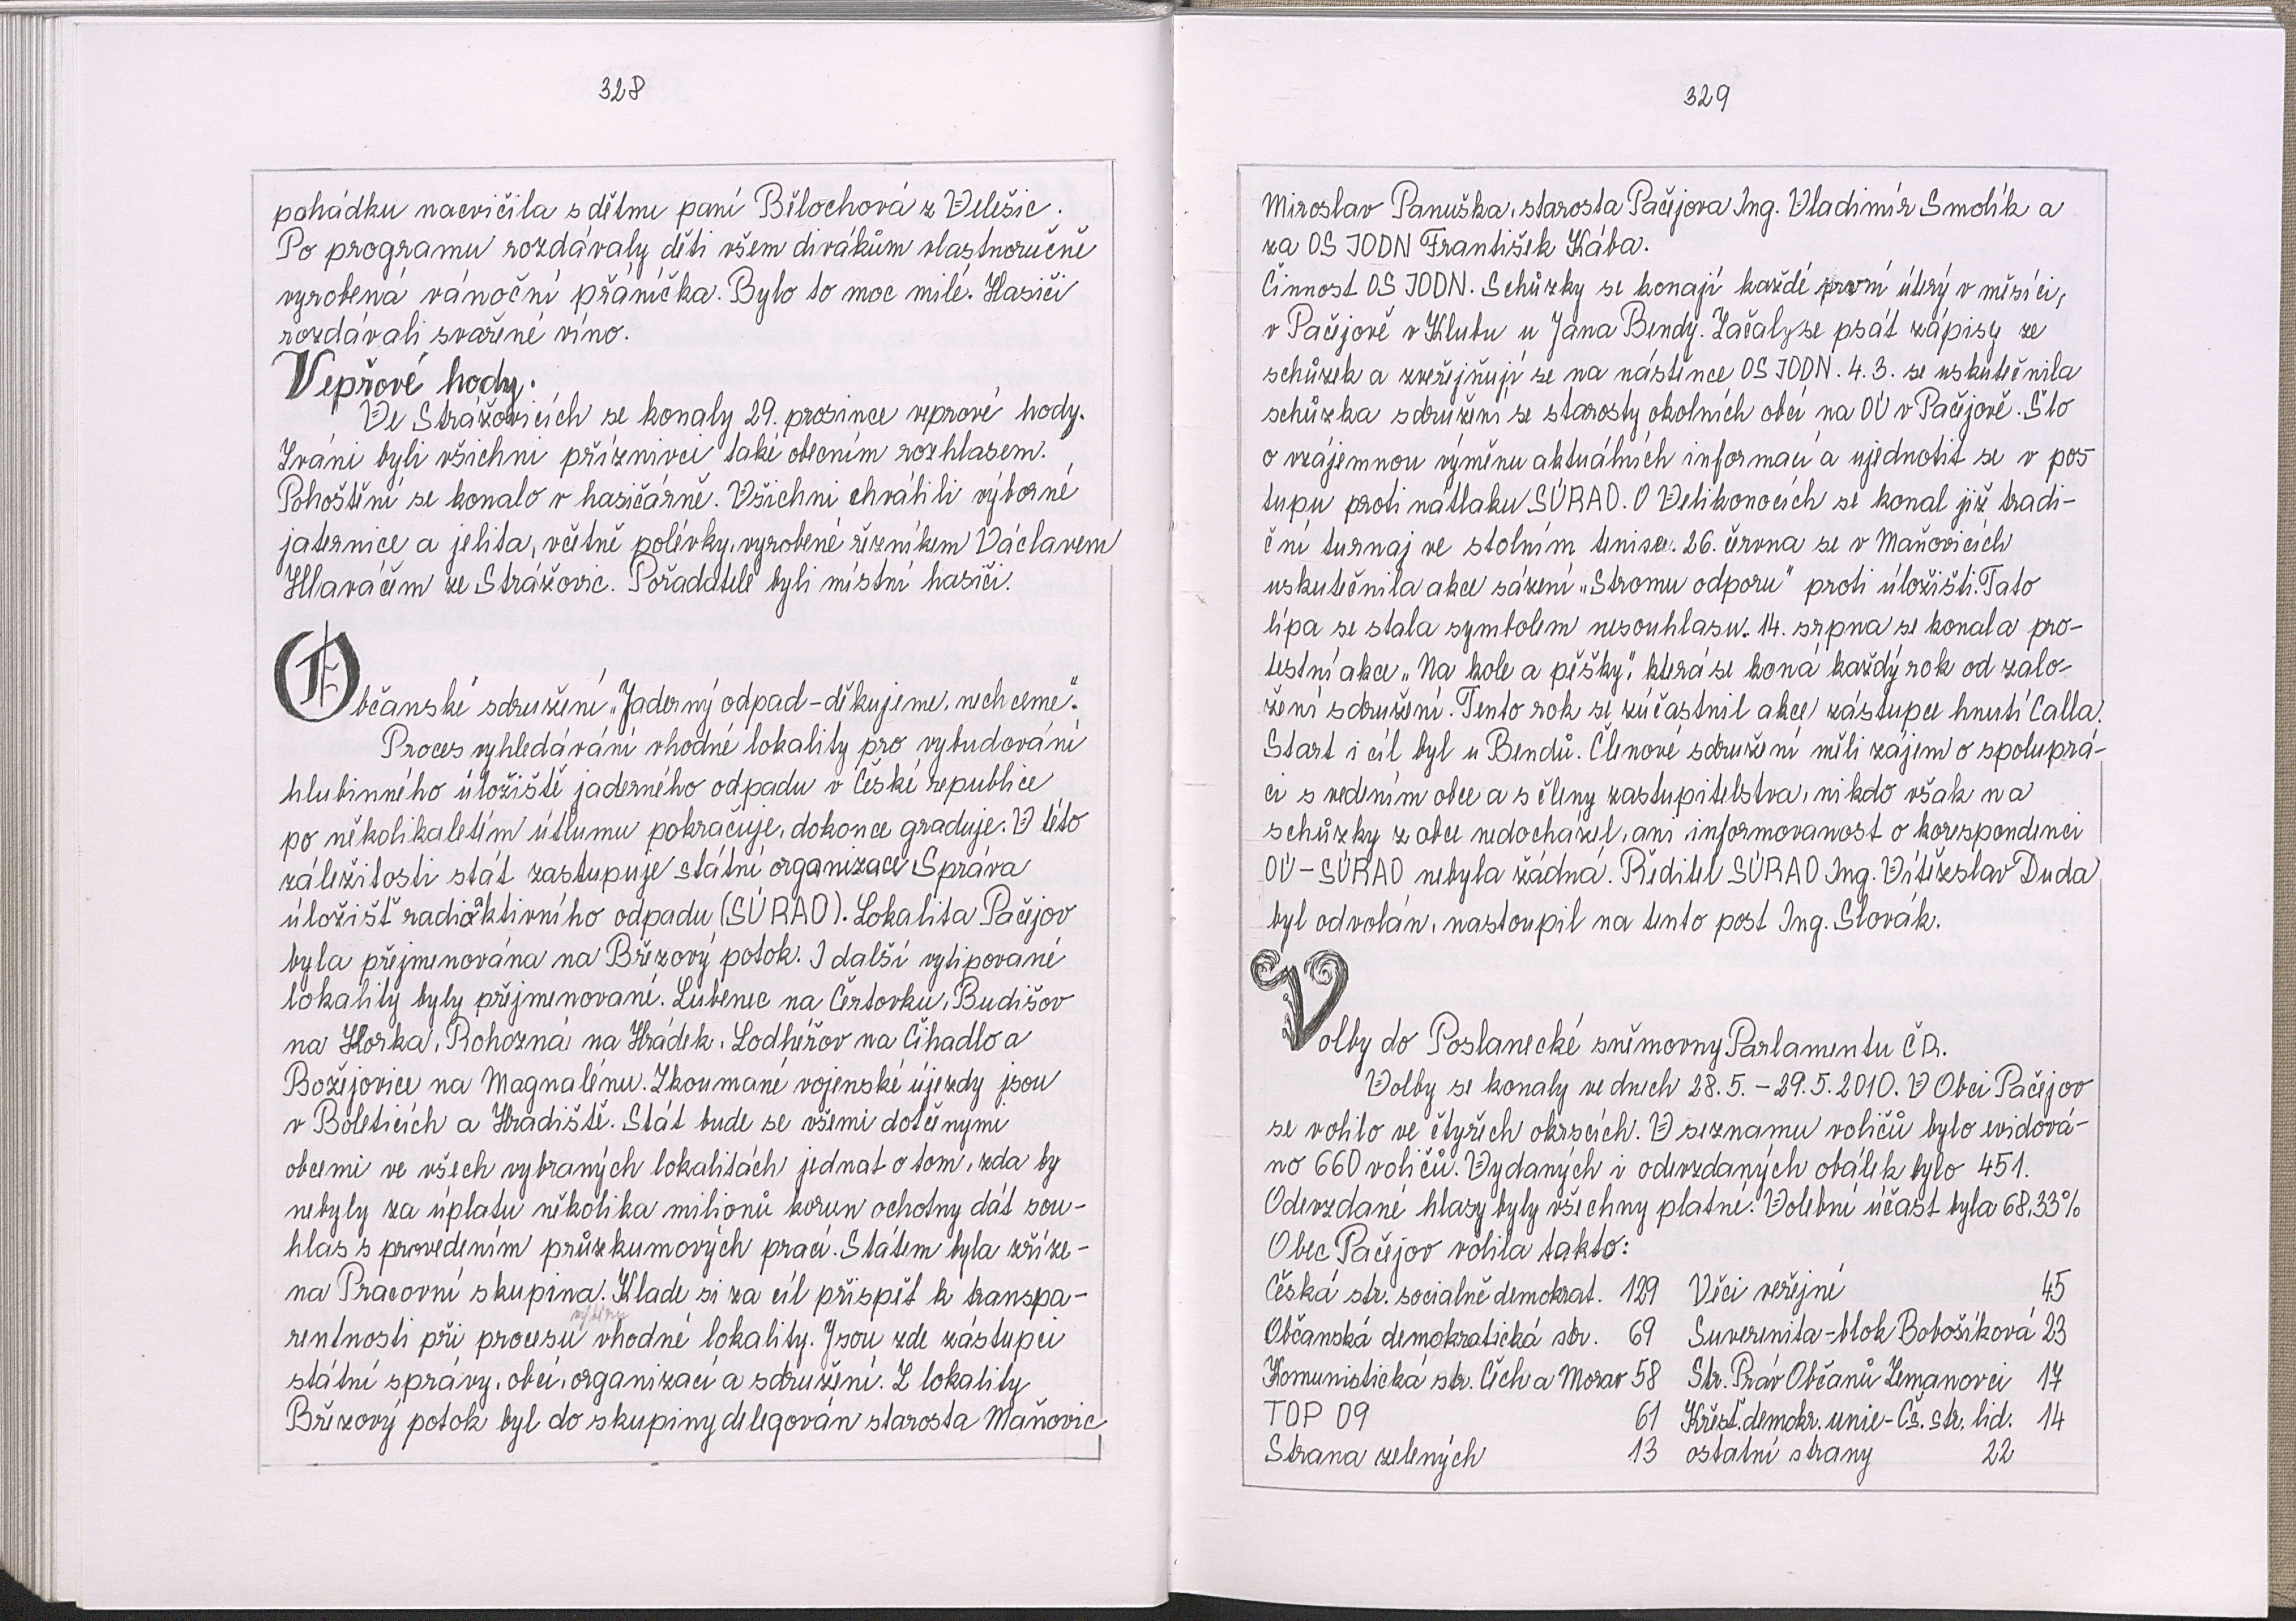 328
pohádku nacvičila s dětmi paní Bělochová z Velešic.
Po programu rozdávaly děti všem divákům vlastnoručně
vyrobená vánoční přáníčka. Bylo to moc milé. Hasiči
rozdávali svařené víno.
Vepřové hody.
Ve Strážovicích se konaly 29. prosince veprové hody.
Zváni byli všichni příznivci také obecním rozhlasem.
Pohoštění se konalo v hasičárně. Všichni chválili výborné
jaternice a jelita, včetně polévky, vyrobené řezníkem Václavem
Hlaváčem ze Strážovic. Pořadatelé byli místní hasiči.
Občanské sdružení „Jaderný odpad - děkujeme, nechceme".
Proces vyhledávání vhodné lokality pro vybudování
hlubinného úložiště jaderného odpadu v České republice
po několikaletím útlumu pokračuje, dokonce graduje. V této
záležitosti stát zastupuje státní organizace Správa
úložišť radioaktivního odpadu (SÚRAO). Lokalita Pačejov
byla přejmenována na Březový potok. I další vytipované
lokality byly přejmenované. Lubenec na Čertovku, Budišov
na Horka, Rohozná na Hrádek, Lodhéřov na Čihadlo a
Božejovice na Magnalénu. Zkoumané vojenské újezdy jsou
v Boleticích a Hradiště. Stát bude se všemi dotčenými
obcemi ve všech vybraných lokalitách jednat o tom, zda by
nebyly za úplatu několika milionů korun ochotny dát sou-
hlas s provedením průzkumových prací. Státem byla zříze-
na Pracovní skupina. Klade si za cíl přispět k transpa-
výběru
rentnosti při procesu vhodné lokality. Jsou zde zástupci
státní správy, obcí, organizací a sdružení. Z lokality
Březový potok byl do skupiny delegován starosta Maňovic
329
Miroslav Panuška, starosta Pačejova Ing. Vladimír Smolík a
za OS JODN František Kába.
Činnost OS JODN. Schůzky se konají každé první úterý v měsíci,
v Pačejově v Klubu u Jana Bendy. Začaly se psát zápisy ze
schůzek a zveřejňují se na nástěnce OS JODN. 4.3. se uskutečnila
schůzka sdružení se starosty okolních obcí na OÚ v Pačejově. Šlo
o vzájemnou výměnu aktuálních informací a ujednotit se v pos
tupu proti nátlaku SÚRAO. O Velikonocích se konal již tradi-
ční turnaj ve stolním tenise. 26. června se v Maňovicích
uskutečnila akce sázení „Stromu odporu" proti úložišti. Tato
lípa se stala symbolem nesouhlasu. 14. srpna se konala pro-
testní akce „Na kole a pěšky", která se koná každý rok od zalo-
žení sdružení. Tento rok se zúčastnil akce zástupce hnutí Calla.
Start i cíl byl u Bendů. Členové sdružení měli zájem o spoluprá-
ci s vedením obce a s členy zastupitelstva, nikdo však na
schůzky z obce nedocházel, ani informovanost o korespondenci
OÚ - SÚRAO nebyla žádná. Ředitel SÚRAO Ing. Vítězslav Duda
byl odvolán, nastoupil na tento post Ing. Slovák.
Volby do Poslanecké sněmovny Parlamentu ČR.
Volby se konaly ve dnech 28.5. - 29.5.2010. V Obci Pačejov
se volilo ve čtyřech okrscích. V seznamu voličů bylo evidová-
no 660 voličů. Vydaných i odevzdaných obálek bylo 451.
Odevzdané hlasy byly všechny platné. Volební účast byla 68,33%
Obec Pačejov volila takto:
Česká str. socialně demokrat. 129 Věci veřejné 45
Občanská demokratická str. 69 Suverenita - blok Bobošíková 23
Komunistická str. Čech a Morav 58 Str. Práv Občanů Zemanovci 17
TOP 09 61 Křesť. demokr. unie - Čs. str. lid. 14
Strana zelených 13 ostatní strany 22